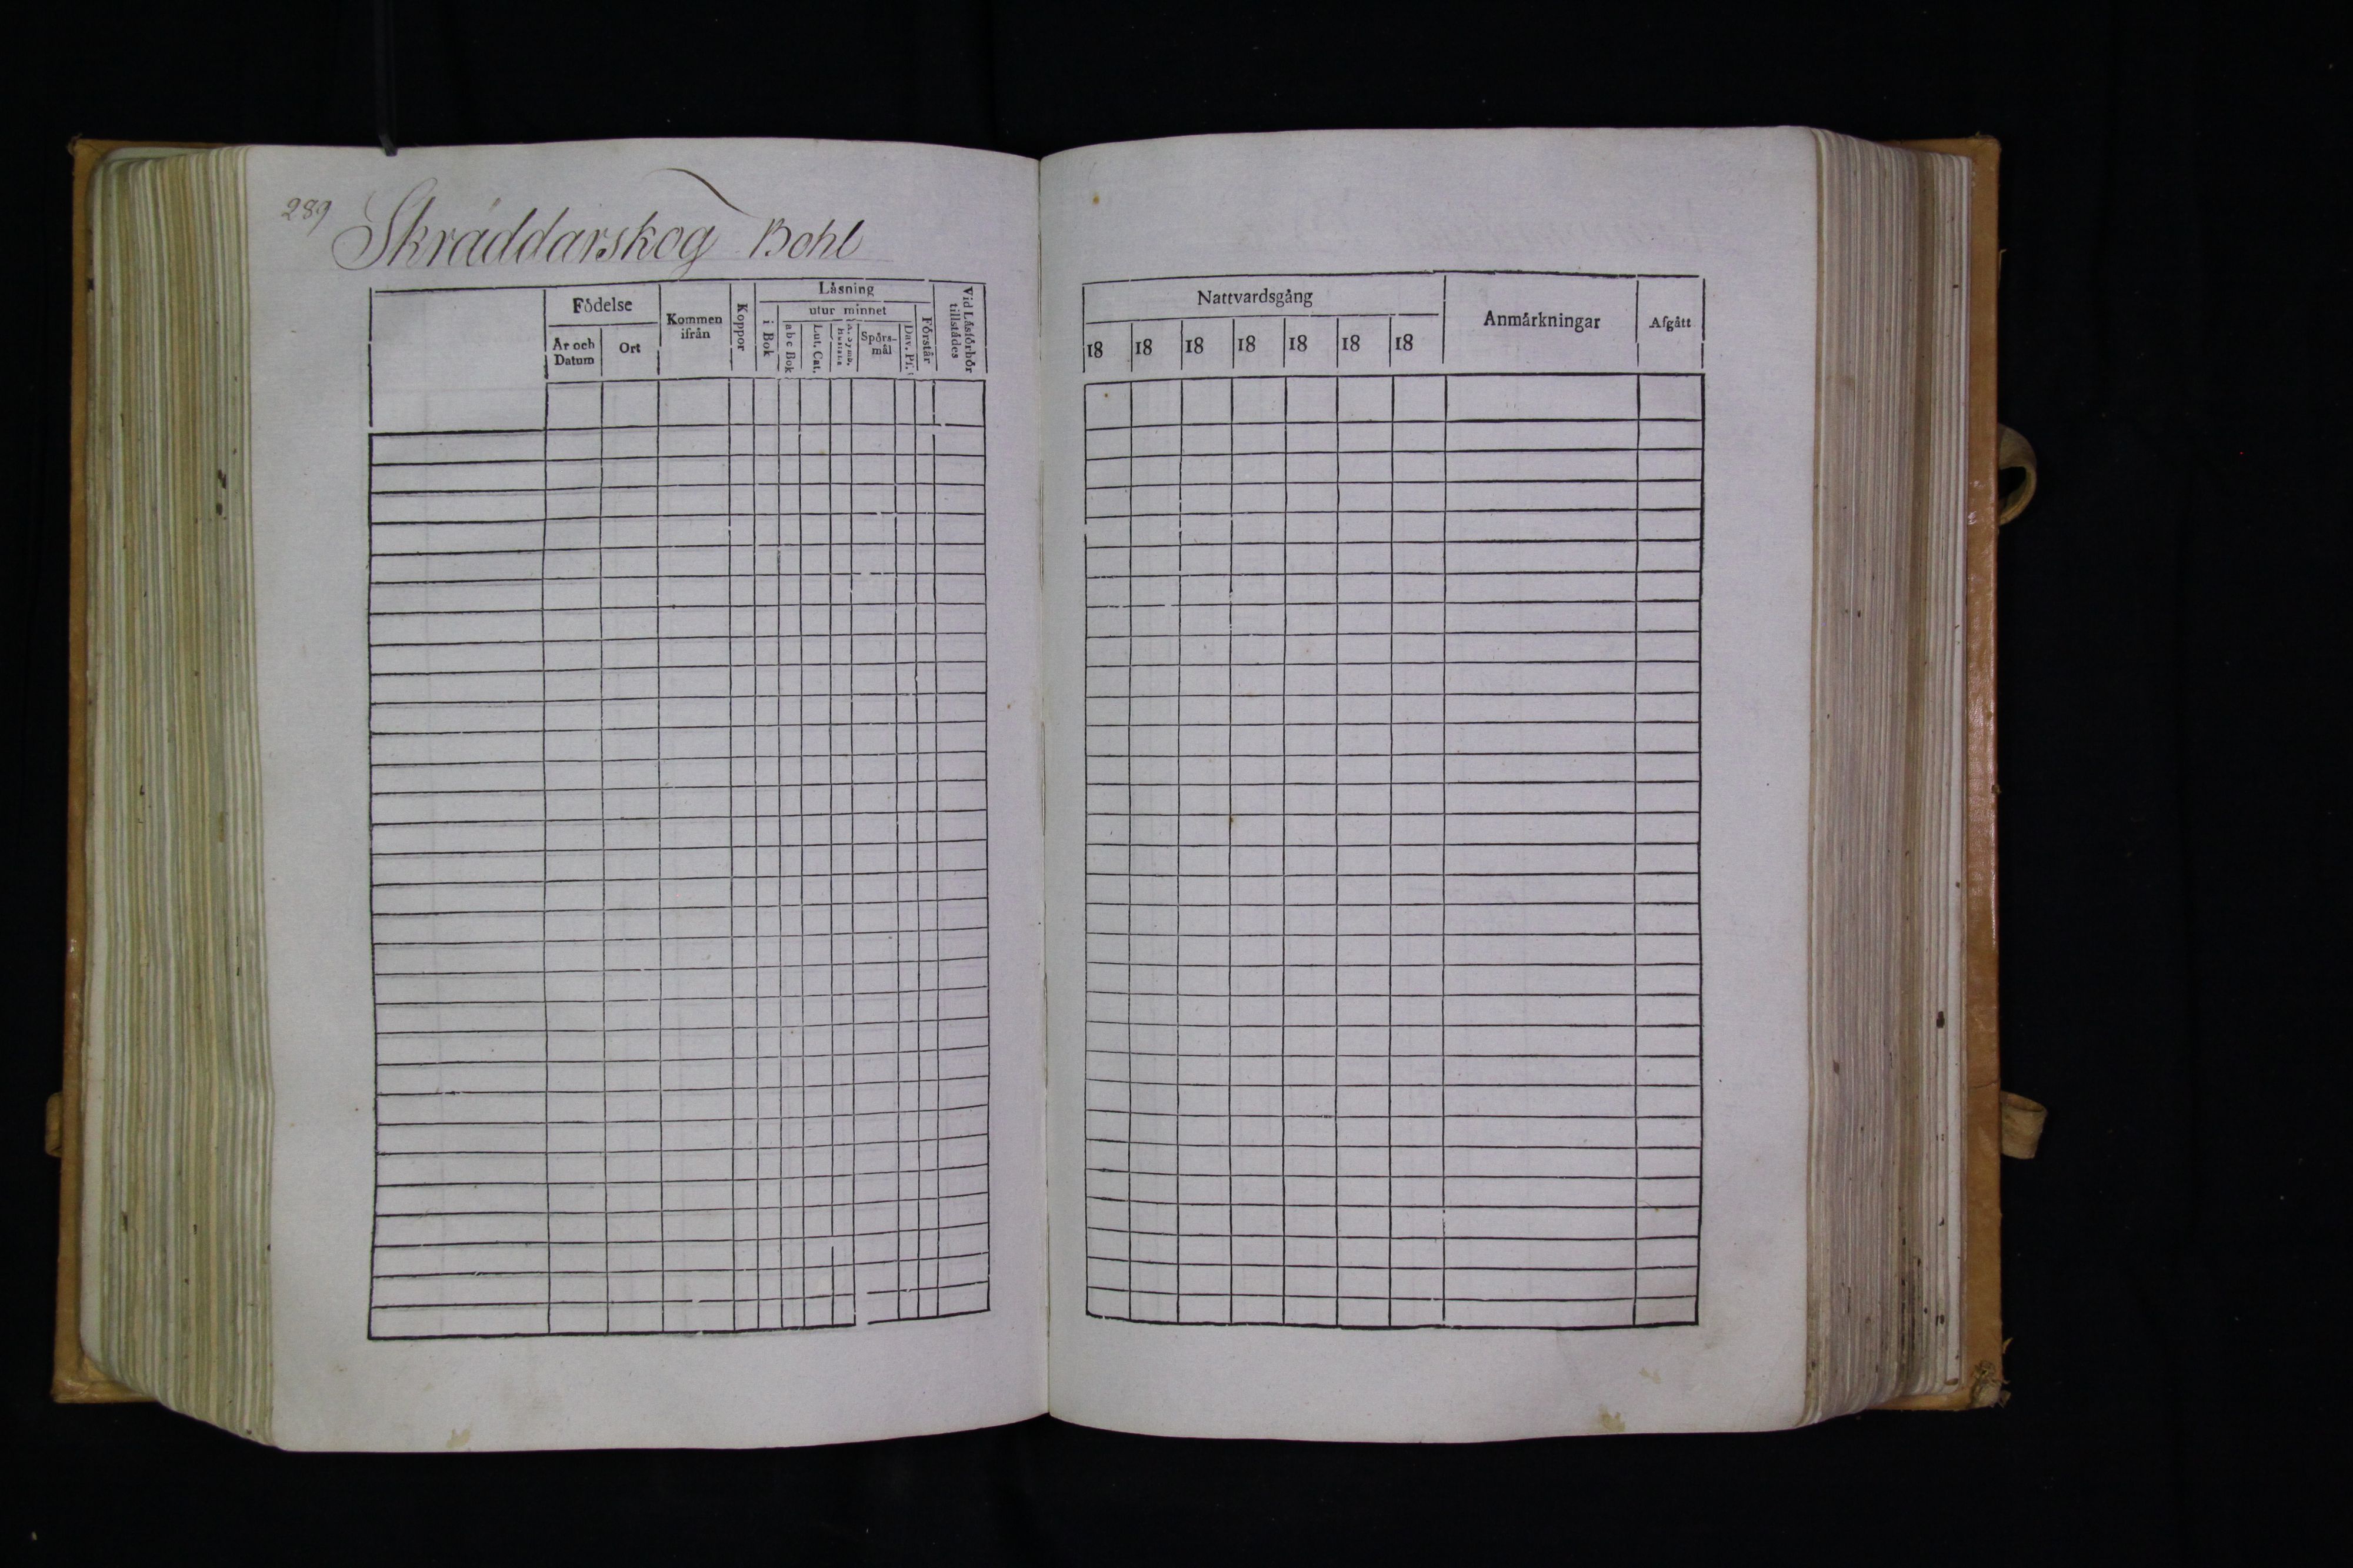 289
Skräddarskog Bohl
Födelse
År och Datum
Ort
Kommen ifrån
Koppor
Läsning
i Bok
utur minnet
a b c Bok
Lut. Cat.
Spörs-mål
Dav. Ps.
Förstår
Vid Läsförhör tillstädes
Nattvardsgång
18 18 18 18 18 18 18
Anmärkningar
Afgått